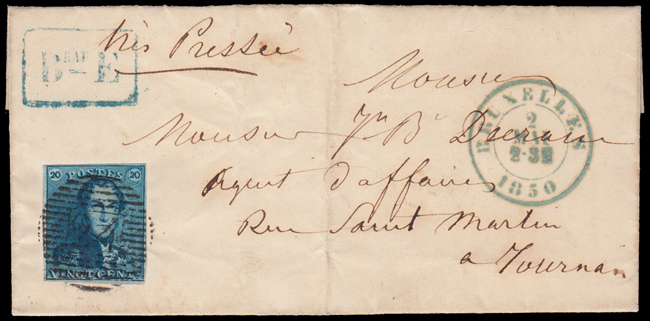 très Pressée
BEAU
B — E
Monsieur
Monsieur J.n B.te Decrain
Agent d'affaires
Rue Saint Martin
a Tournai
BRUXELLES
2
MAI
2-3E
1850
20 POSTES 20
VINGT CENT.